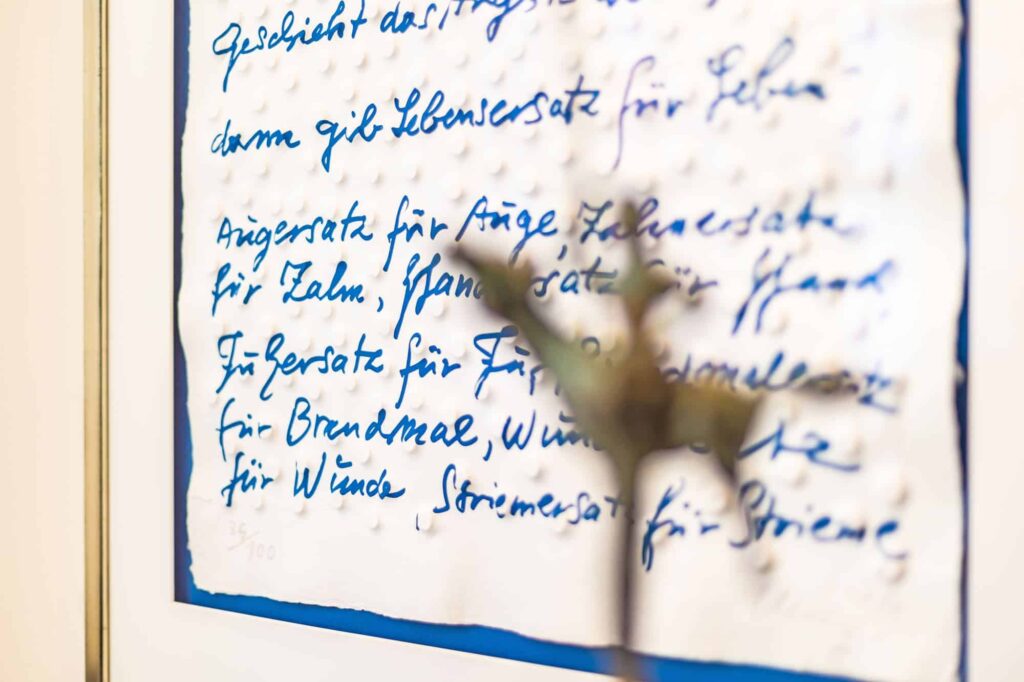 Geschieht das
dann gib Lebensersatz für Leben
Augersatz für Auge, Zahnersatz
für Zahn, Hand satz für Hand
Fußersatz für Fuß,
für Brandmal,
für Wunde, Striemersatz für Strieme
36/100